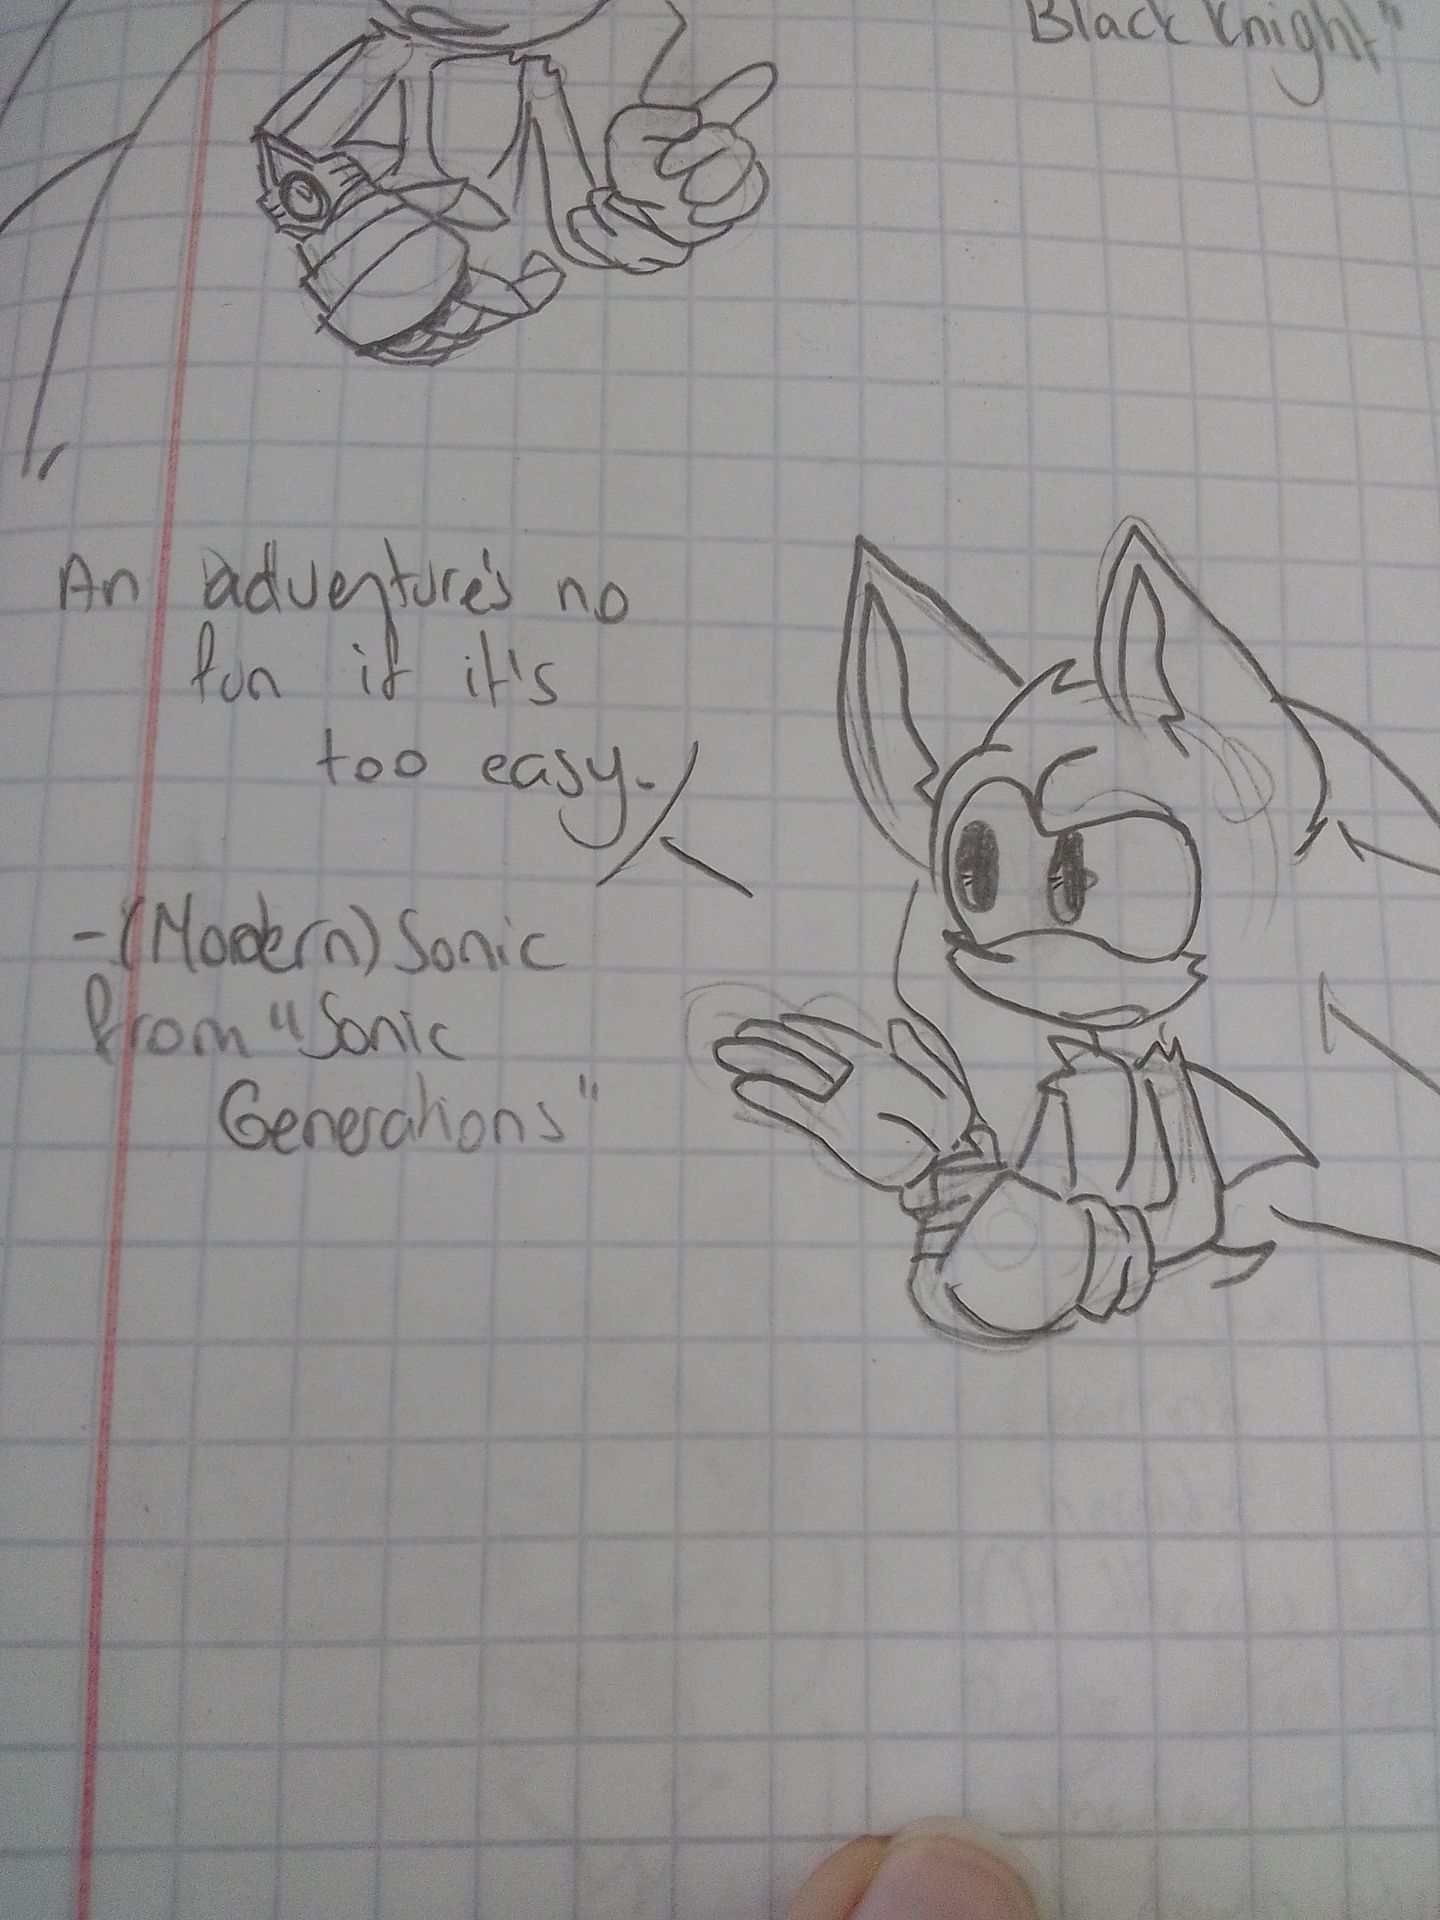 Black Knight"
An adventure's no
fun if it's
too easy.
-(Modern) Sonic
from "Sonic
Generations"